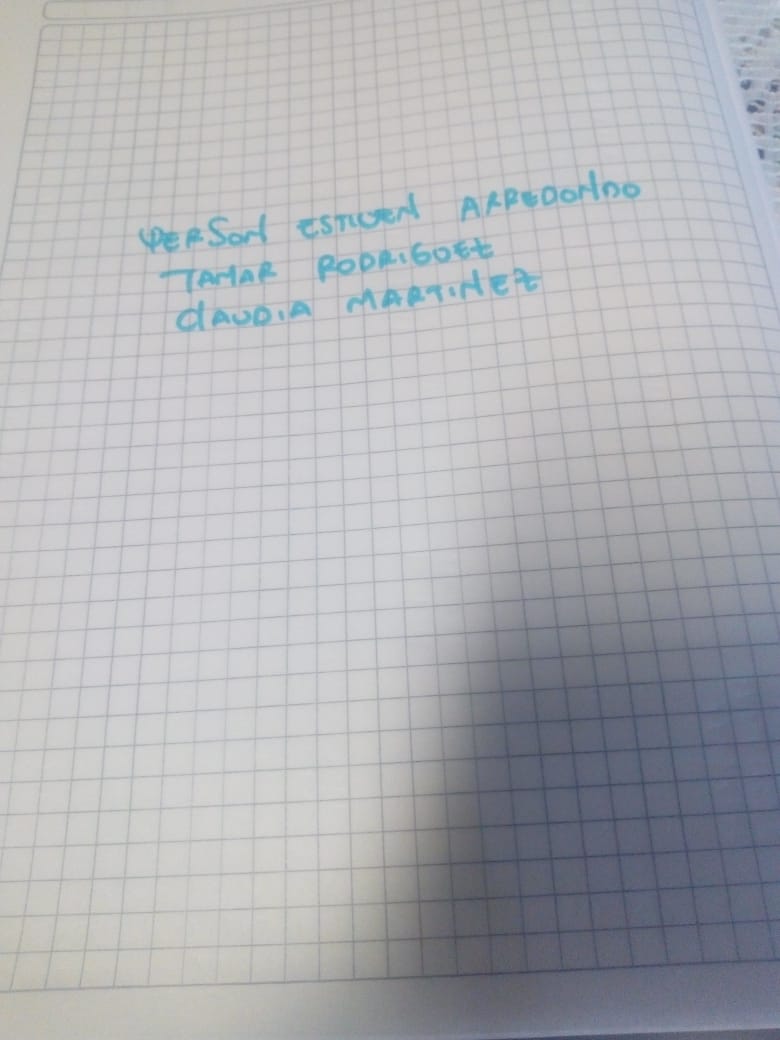 YERSON ESTIVEN ARREDONDO
TAMAR RODRIGUEZ
CLAUDIA MARTINEZ